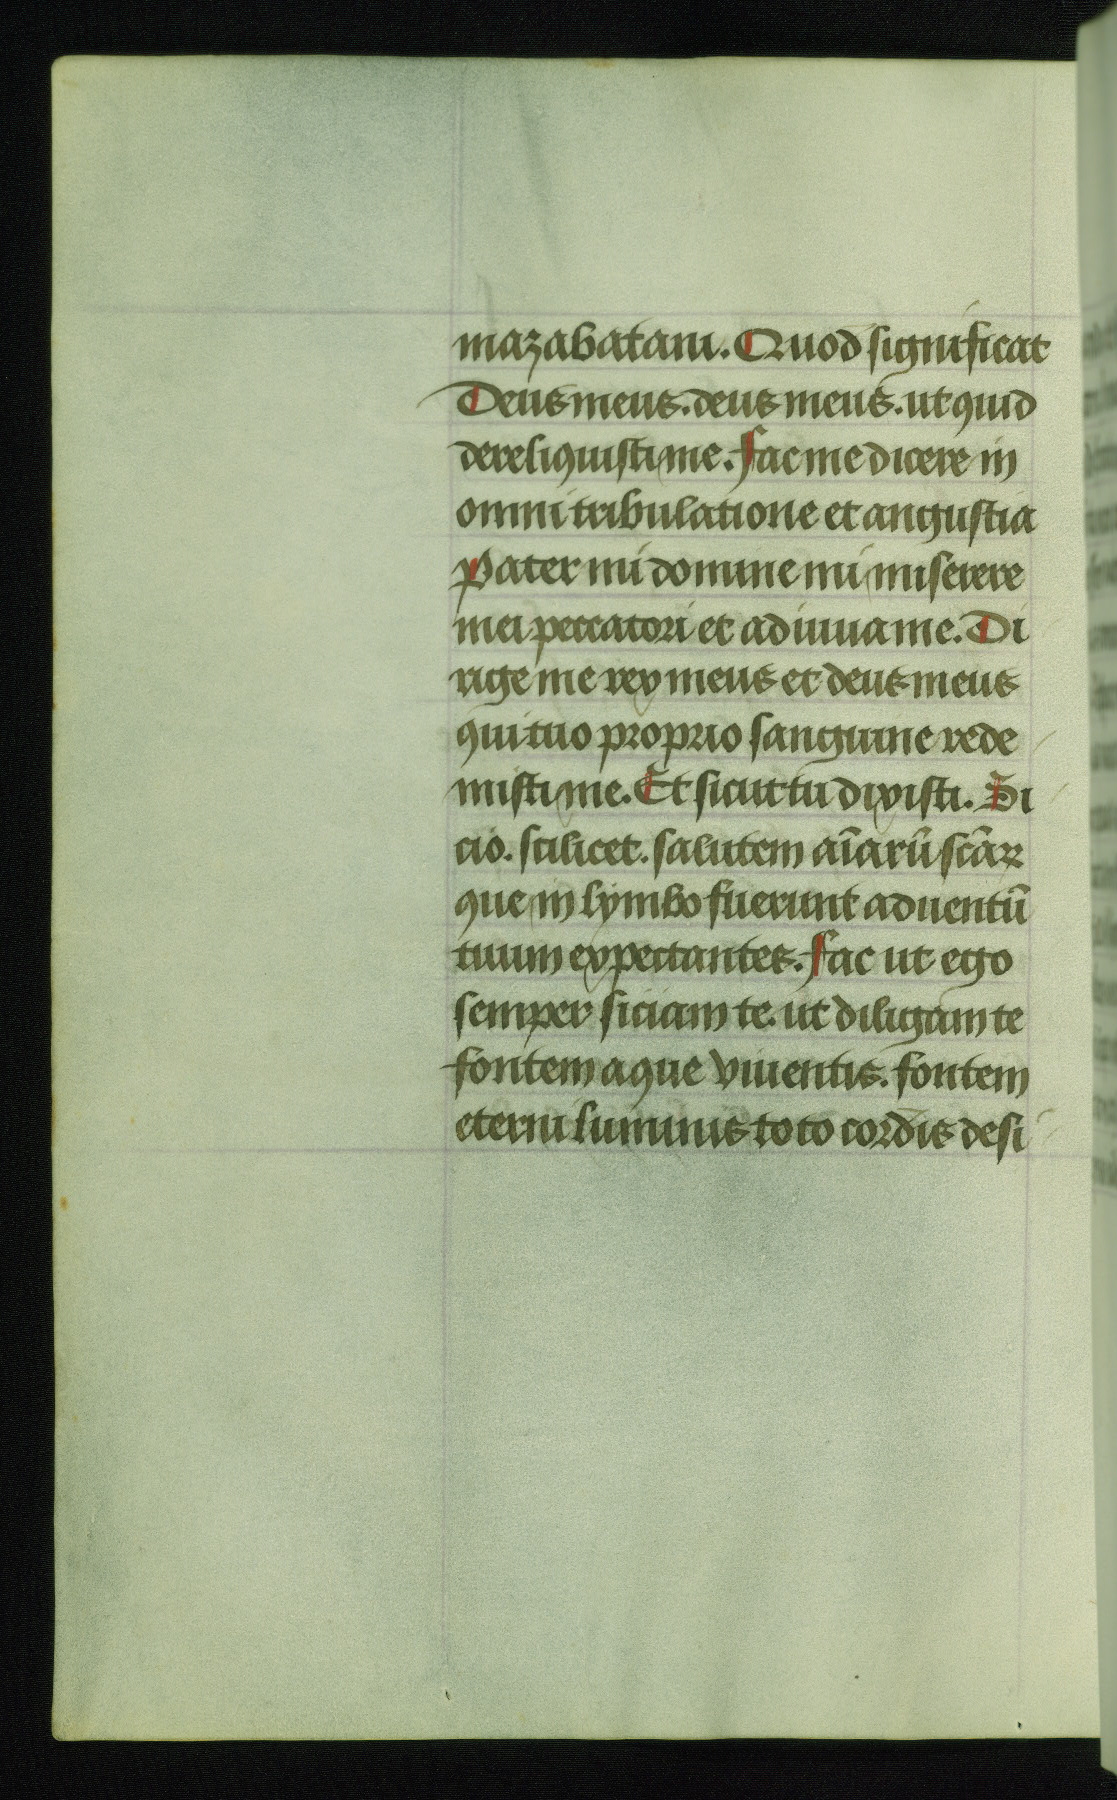 mazabatani. Quod significat
Deus meus. deus meus. ut quid
dereliquisti me. Fac me dicere in
omni tribulatione et angustia
Pater mi domine mi miserere
mei peccatori et adiuua me. Di
rige me rex meus et deus meus
qui tuo proprio sanguine rede
misti me. Et sicut tu dixisti. Si
cio. scilicet. salutem aīarū scāꝝ
que in lymbo fuerunt aduentū
tuum expectantes. Fac ut ego
semper siciam te. ut diligam te
fontem aque viuentis. fontem
eterni luminis toto cordis desi